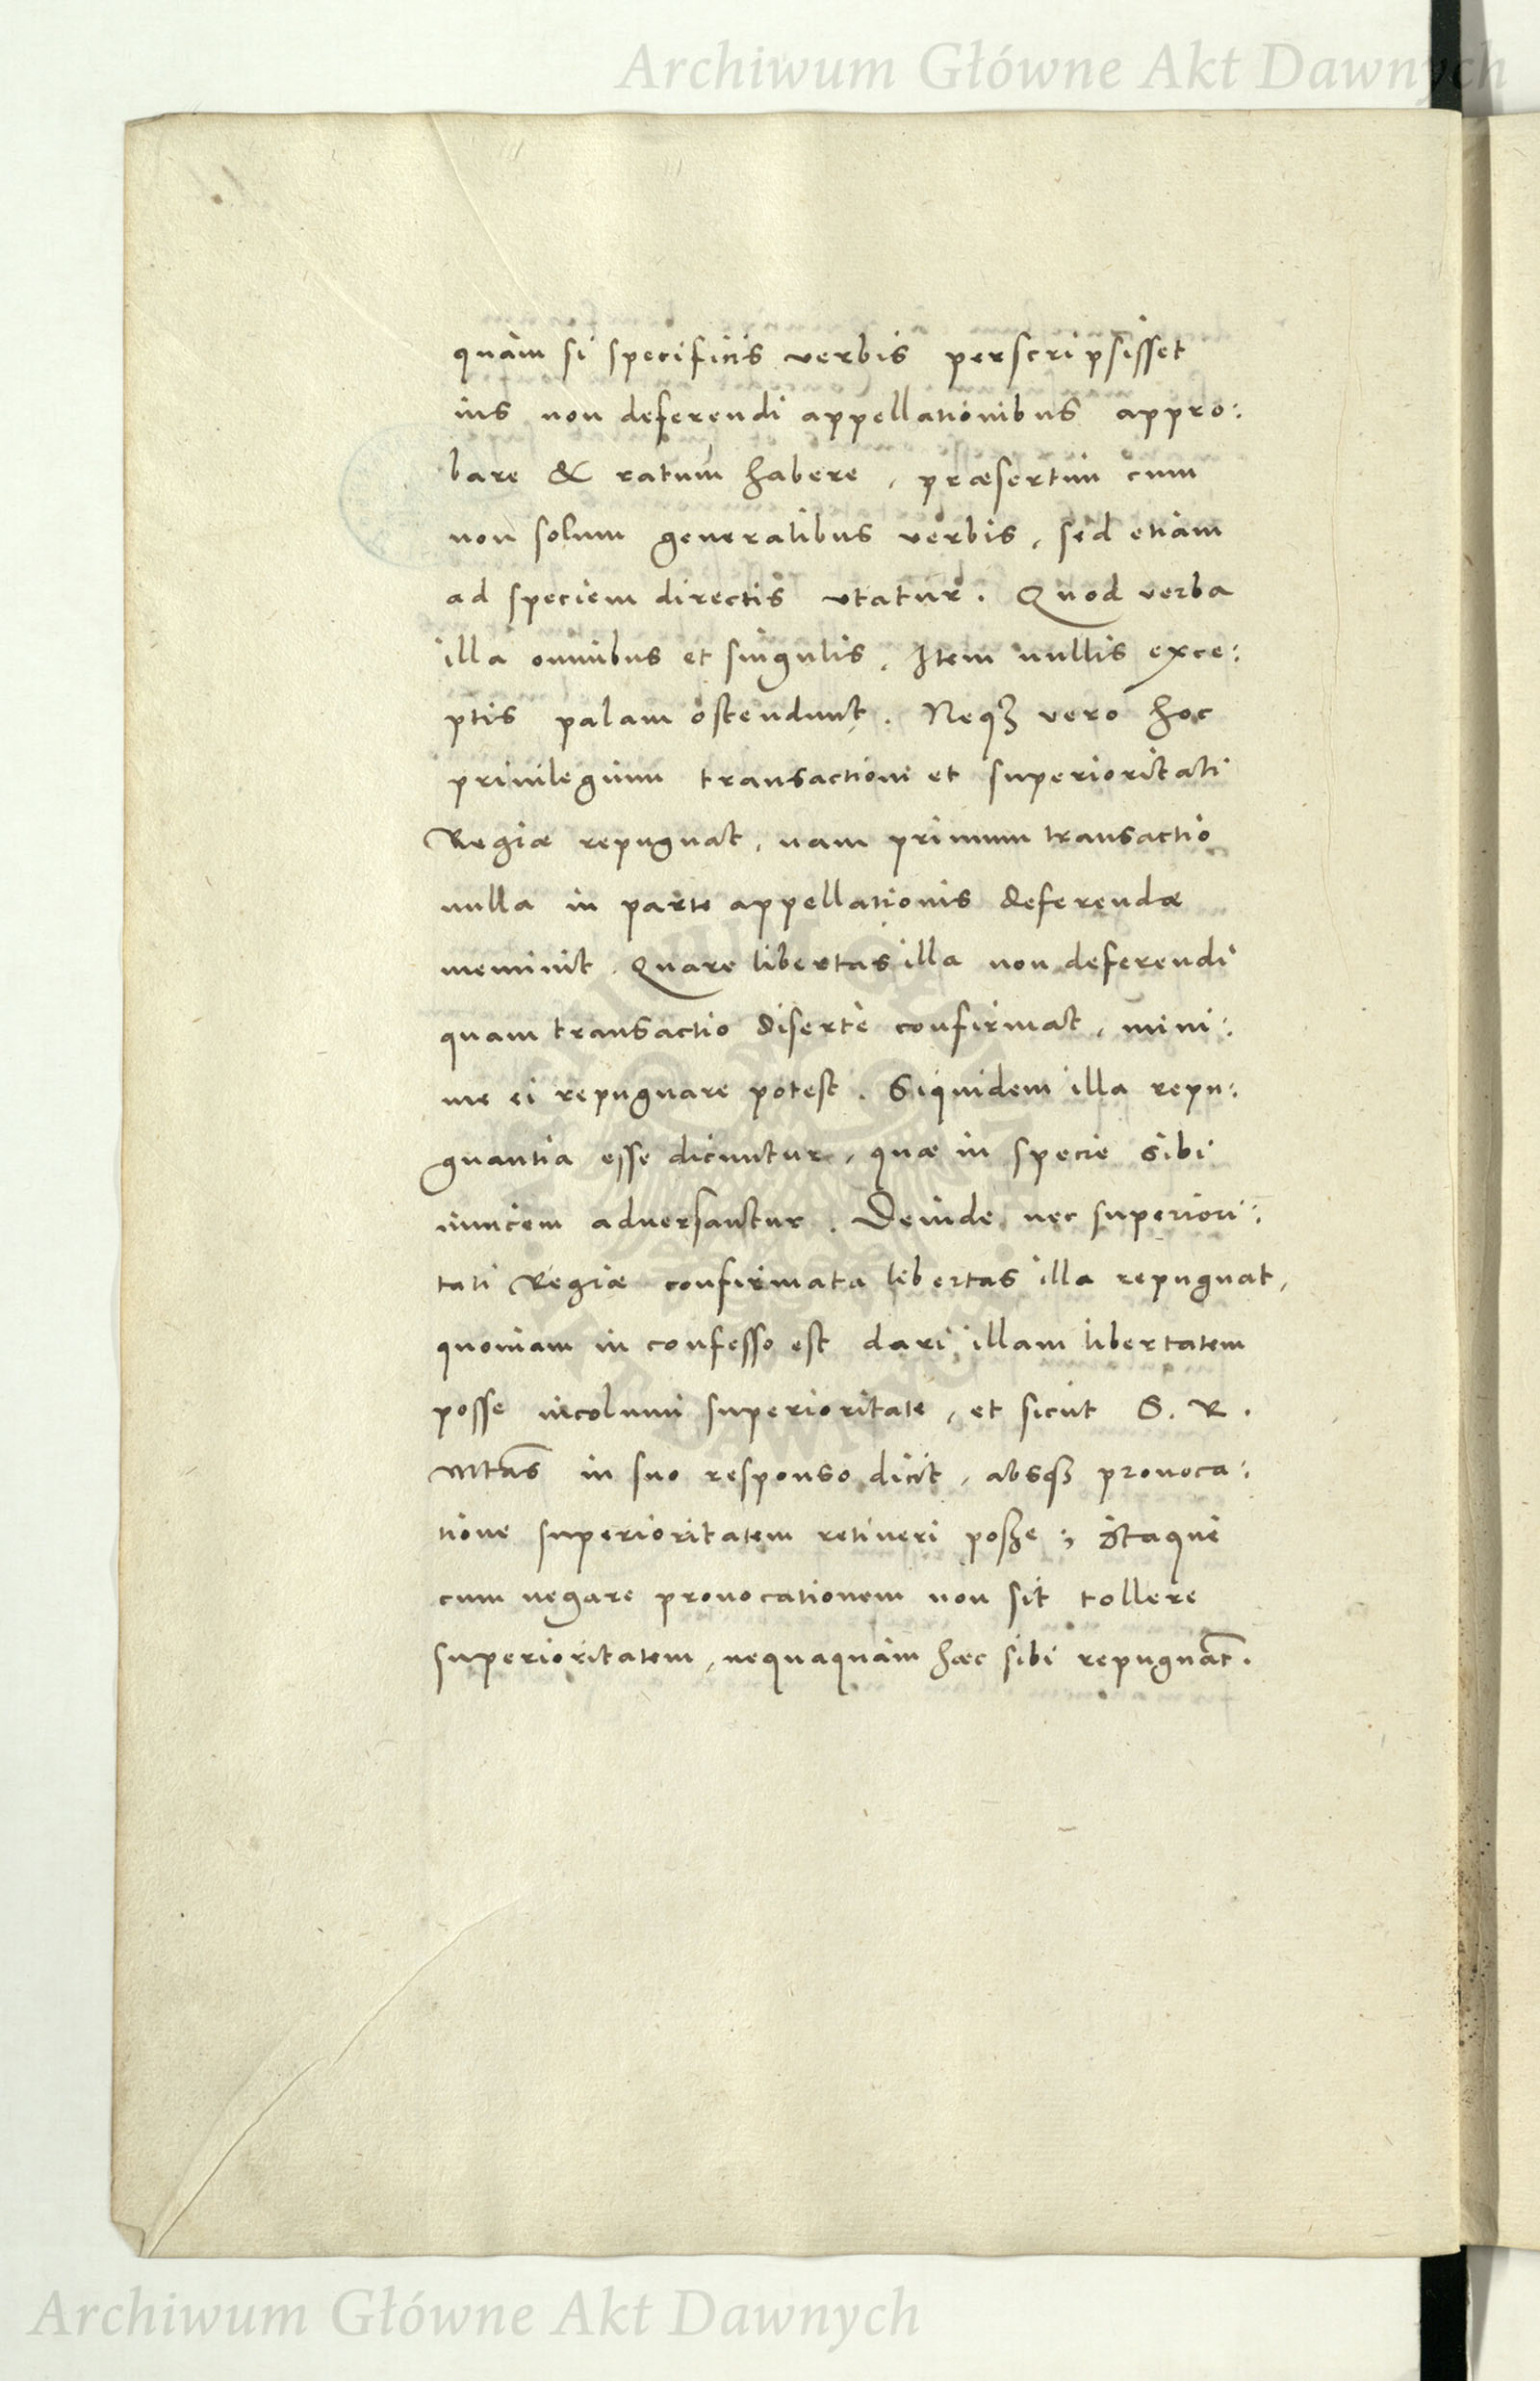 Archiwum Główne Akt Dawnych
quàm si specificis verbis perscripsisset
ius non deferendi appellationibus appro:
bare & ratum habere, præsertim cum
non solum generalibus verbis, sed etiam
ad speciem directis vtatur. Quod verba
illa omnibus et singulis, Item nullis exce:
ptis palam ostendunt. Neqꝫ vero hoc
priuilegium transactioni et superioritati
Regiæ repugnat, nam primum transactio
nulla in parte appellationis deferendæ
meminit. Quare libertas illa non deferendi
quam transactio disertè confirmat, mini:
me ei repugnare potest. Siquidem illa repu:
gnantia esse dicuntur, quæ in specie sibi
inuicem aduersantur. Deinde nec superiori:
tati Regiæ confirmata libertas illa repugnat,
quoniam in confesso est dari illam libertatem
posse incolumi superioritate, et sicut S. R.
Mtas in suo responso dicit, absqꝫ prouoca:
tione superioritatem retineri posse; Itaque
cum negare prouocationem non sit tollere
superioritatem, nequaquàm hæc sibi repugnāt.
Archiwum Główne Akt Dawnych